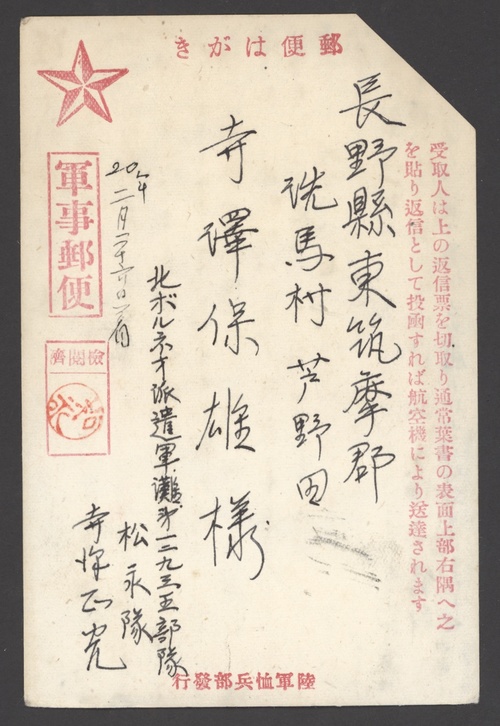 郵便はがき
受取人は上の返信票を切取り通常葉書の表面上部右隅へ之
を貼り返信として投函すれば航空機により送達されます
長野縣東筑摩郡
洗馬村芦野田
寺澤保雄様
軍事郵便
檢閲濟
20年二月二十六日着
北ボルネオ派遣軍灘第一二九三五部隊
松永隊
寺澤正
陸軍恤兵部發行